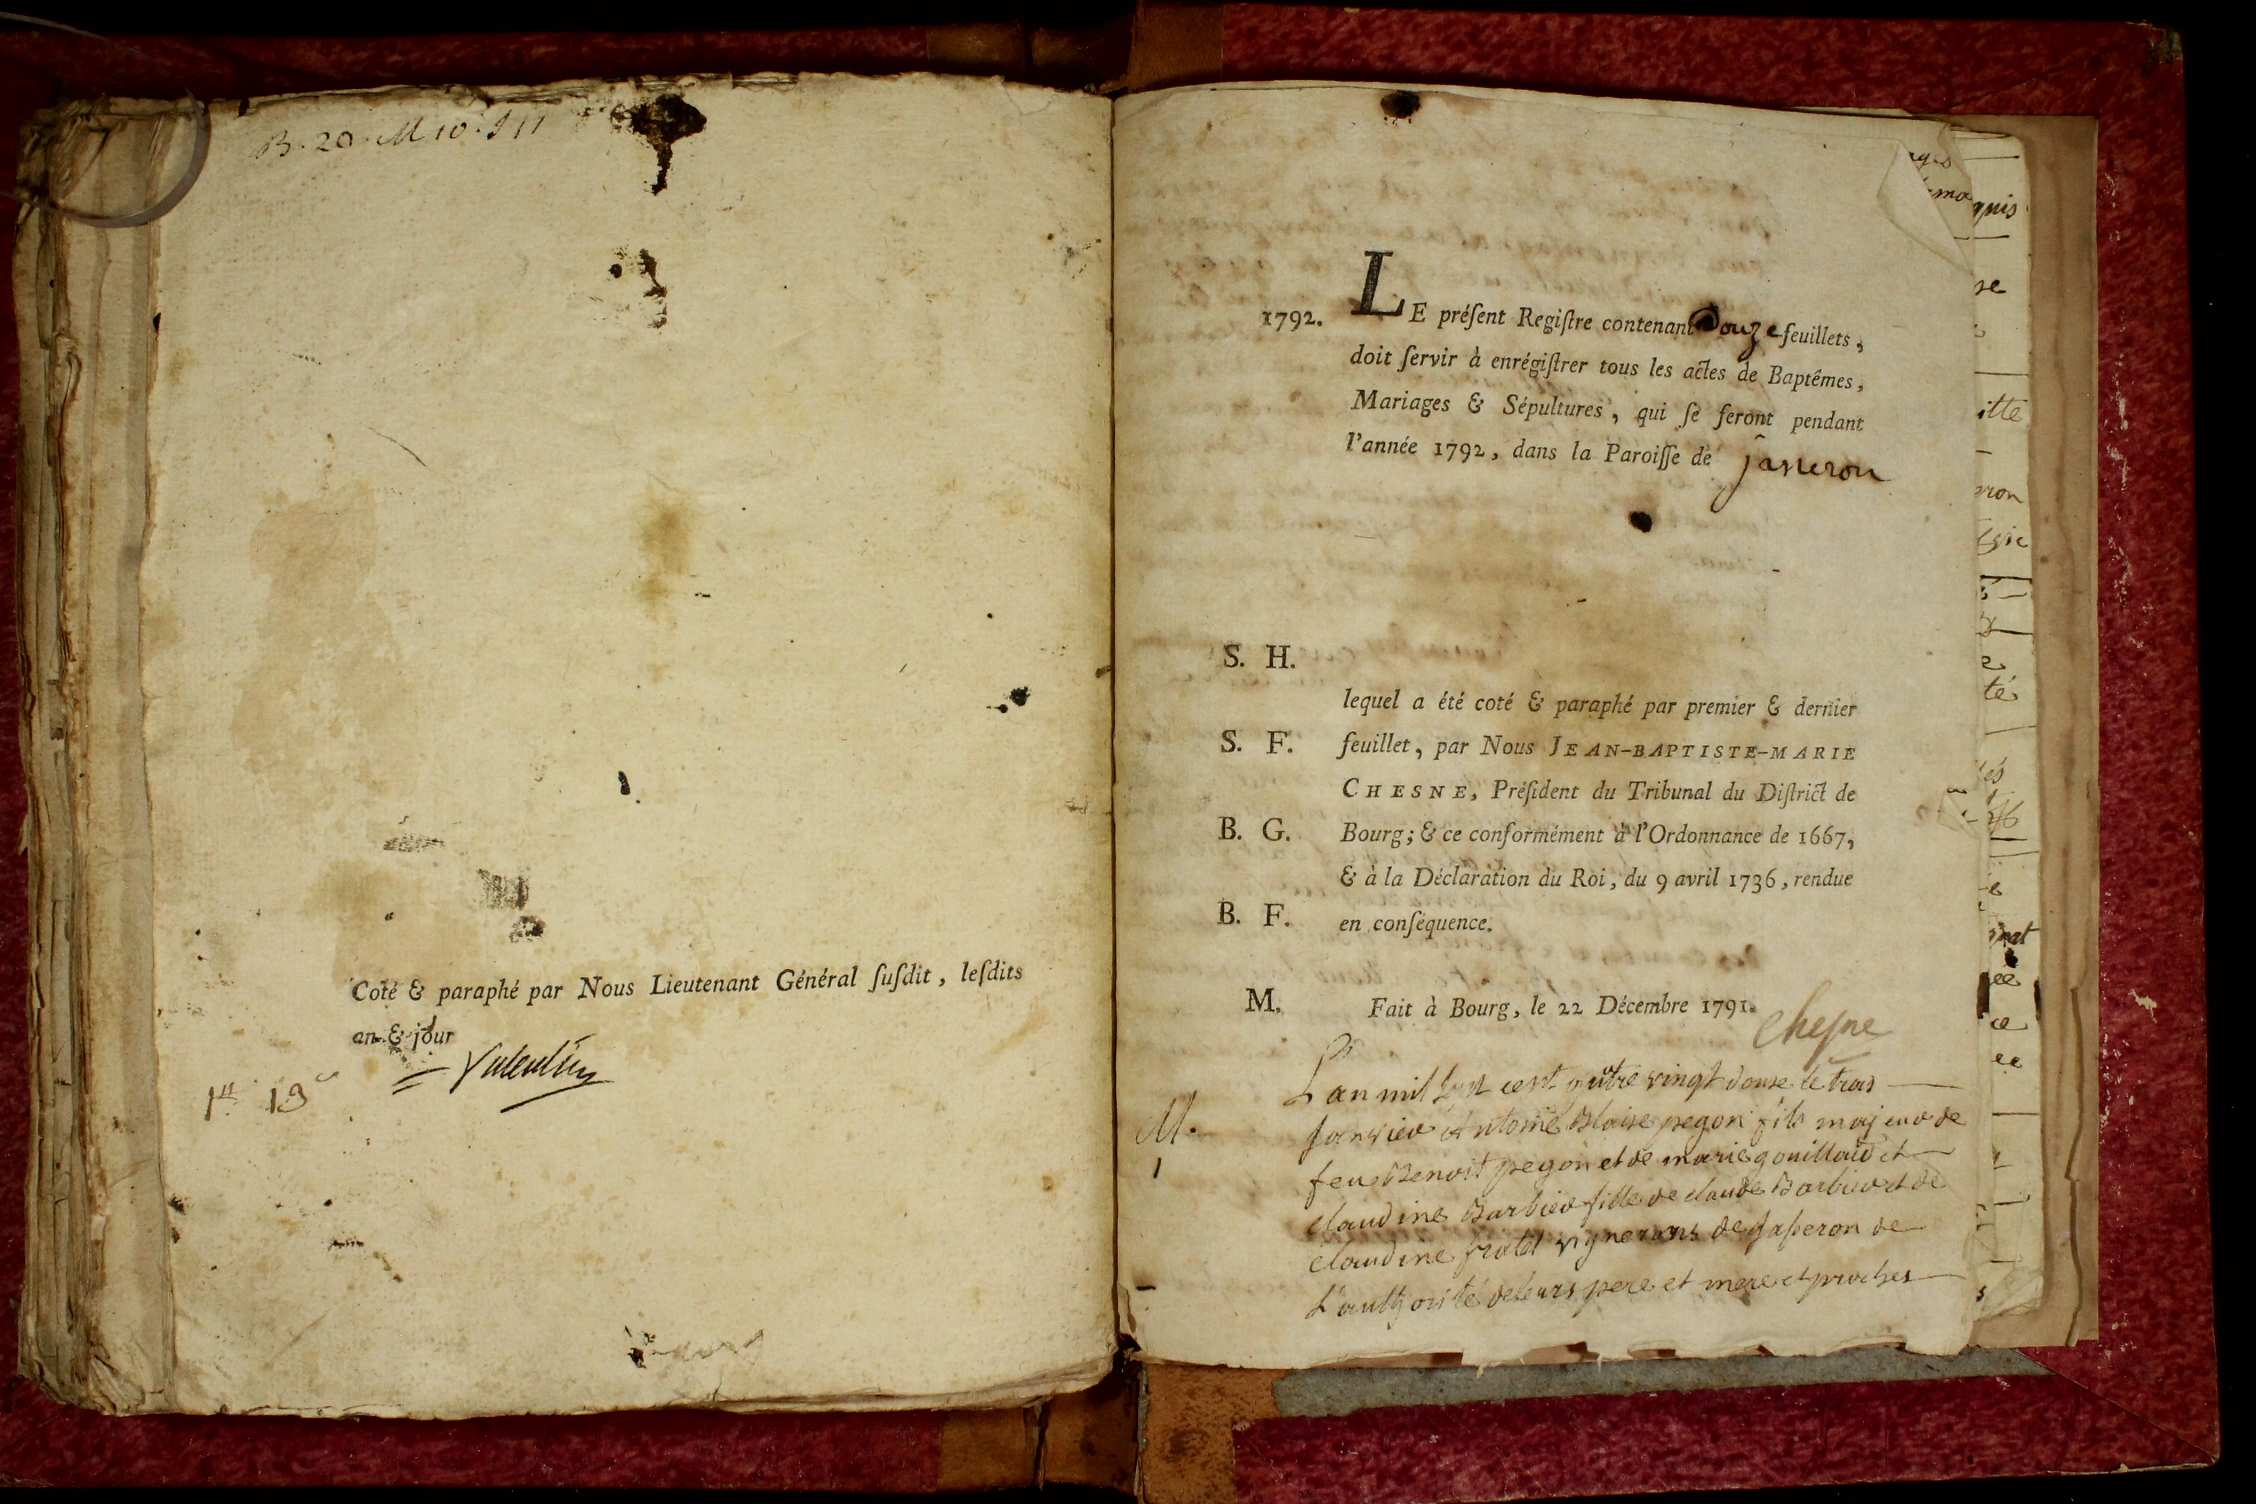 B. 20. M 10. S 11
Coté & paraphé par Nous Lieutenant Général ſuſdit, leſdits
an & jour
Valentin
1792. LE préſent Regiſtre contenant Douze feuillets,
doit ſervir à enrégiſtrer tous les actes de Baptêmes,
Mariages & Sépultures, qui ſe feront pendant
l'année 1792, dans la Paroiſſe de jasseron
S. H.
lequel a été coté & paraphé par premier & dernier
S. F. feuillet, par Nous JEAN-BAPTISTE-MARIE
CHESNE, Préſident du Tribunal du Diſtrict de
B. G. Bourg; & ce conformément à l'Ordonnance de 1667,
& à la Déclaration du Roi, du 9 avril 1736, rendue
B. F. en conſéquence.
M. Fait à Bourg, le 22 Décembre 1791.
Chesne
L'an mil sept cent quatre vingt douse le trois
M. janvier Antoine Blaise pegon fils majeur de
1 feu Benoit pegon et de marie gouillaud et
claudine Barbier fille de claude Barbier et de
claudine vignerons de jasseron de
L'authorité de leurs pere et mere et proches